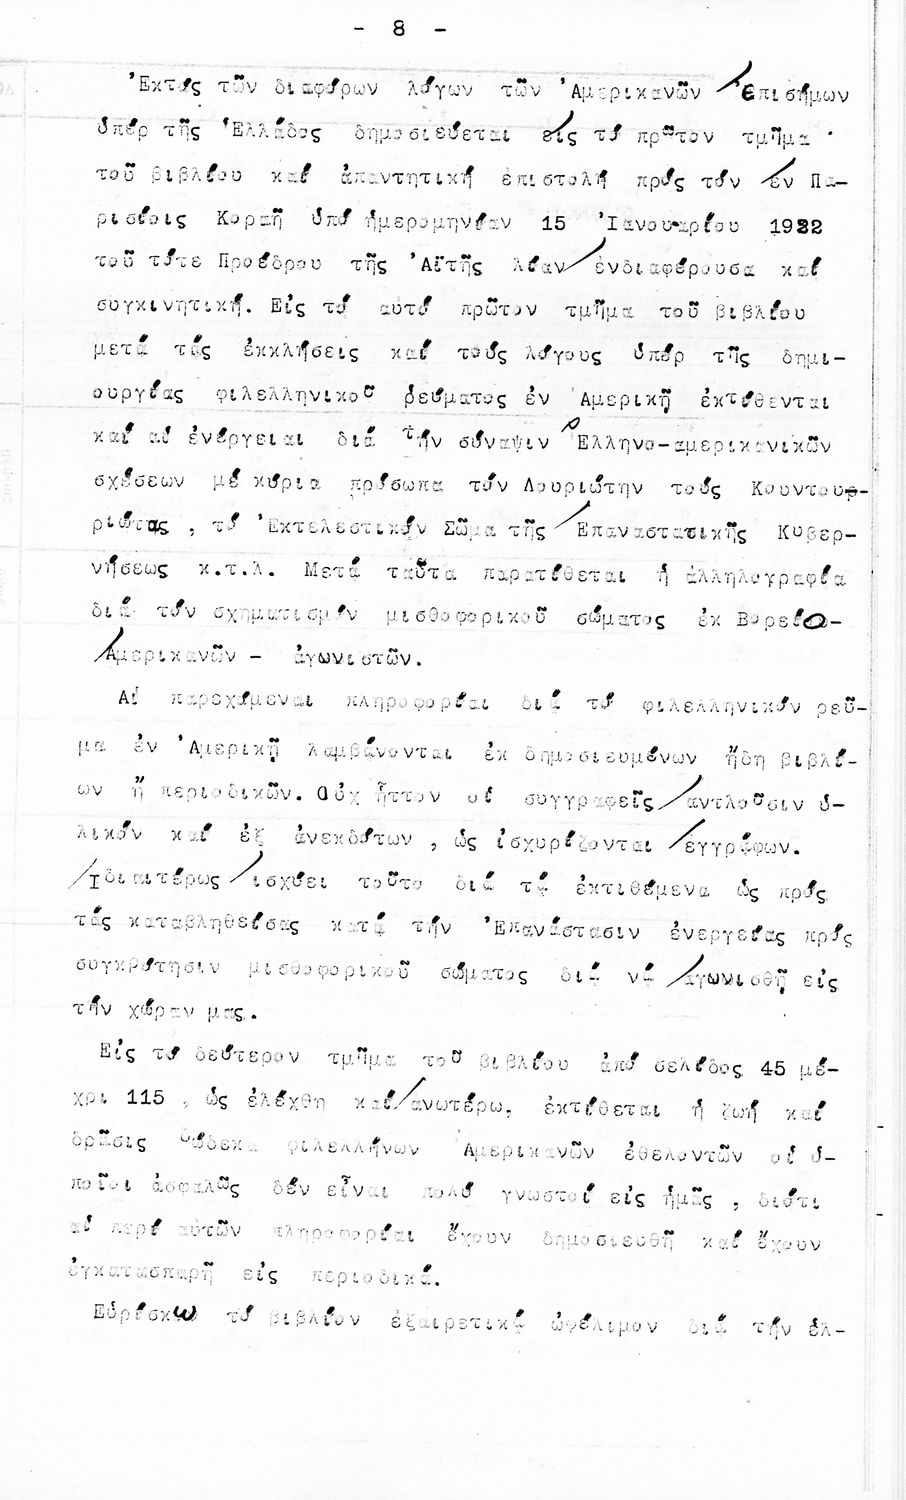 - 8 -
Ἐκτός τῶν διαφόρων λόγων τῶν Ἀμερικανῶν ἐπισήμων
ὑπέρ τῆς Ἑλλάδος δημοσιεύεται εἰς τό πρῶτον τμῆμα
τοῦ βιβλίου καί ἀπαντητική ἐπιστολή πρός τόν ἐν Πα-
ρισίοις Κοραῆ ὑπό ἡμερομηνίαν 15 Ἰανουαρίου 1922
τοῦ τότε Προέδρου τῆς Ἀϊτῆς λίαν ἐνδιαφέρουσα καί
συγκινητική. Εἰς τό αὐτό πρῶτον τμῆμα τοῦ βιβλίου
μετά τάς ἐκκλήσεις καί τούς λόγους ὑπέρ τῆς δημι-
ουργίας φιλελληνικοῦ ρεύματος ἐν Ἀμερικῇ ἐκτίθενται
καί αἱ ἐνέργειαι διά τήν σύναψιν Ἑλληνο-αμερικανικῶν
σχέσεων μέ κύρια πρόσωπα τόν Λουριώτην τούς Κουντου-
ριώτας , τό Ἐκτελεστικόν Σῶμα τῆς Ἐπαναστατικῆς Κυβερ-
νήσεως κ.τ.λ. Μετά ταῦτα παρατίθεται ἡ ἀλληλογραφία
διά τόν σχηματισμόν μισθοφορικοῦ σώματος ἐκ Βορείο-
Ἀμερικανῶν - ἀγωνιστῶν.
Αἱ παρεχόμεναι πληροφορίαι διά τό φιλελληνικόν ρεῦ-
μα ἐν Ἀμερικῇ λαμβάνονται ἐκ δημοσιευμένων ἤδη βιβλί-
ων ἤ περιοδικῶν. Οὐχ ἧττον οἱ συγγραφεῖς ἀντλοῦσιν ὑ-
λικόν καί ἐξ ἀνεκδότων , ὡς ἰσχυρίζονται ἐγγράφων.
Ἰδιαιτέρως ἰσχύει τοῦτο διά τά ἐκτιθέμενα ὡς πρός
τάς καταβληθείσας κατά τήν Ἐπανάστασιν ἐνεργείας πρός
συγκρότησιν μισθοφορικοῦ σώματος διά νά ἀγωνισθῇ εἰς
τήν χώραν μας.
Εἰς τό δεύτερον τμῆμα τοῦ βιβλίου ἀπό σελίδος 45 μέ-
χρι 115 , ὡς ἐλέχθη καί ἀνωτέρω, ἐκτίθεται ἡ ζωή καί
δρᾶσις δώδεκα φιλελλήνων Ἀμερικανῶν ἐθελοντῶν οἱ ὁ-
ποῖοι ἀσφαλῶς δέν εἶναι πολύ γνωστοί εἰς ἡμᾶς , διότι
αἱ περί αὐτῶν πληροφορίαι ἔχουν δημοσιευθῆ καί ἔχουν
ἐγκατασπαρῆ εἰς περιοδικά.
Εὑρίσκω τό βιβλίον ἐξαιρετικά ὠφέλιμον διά τήν ἑλ-